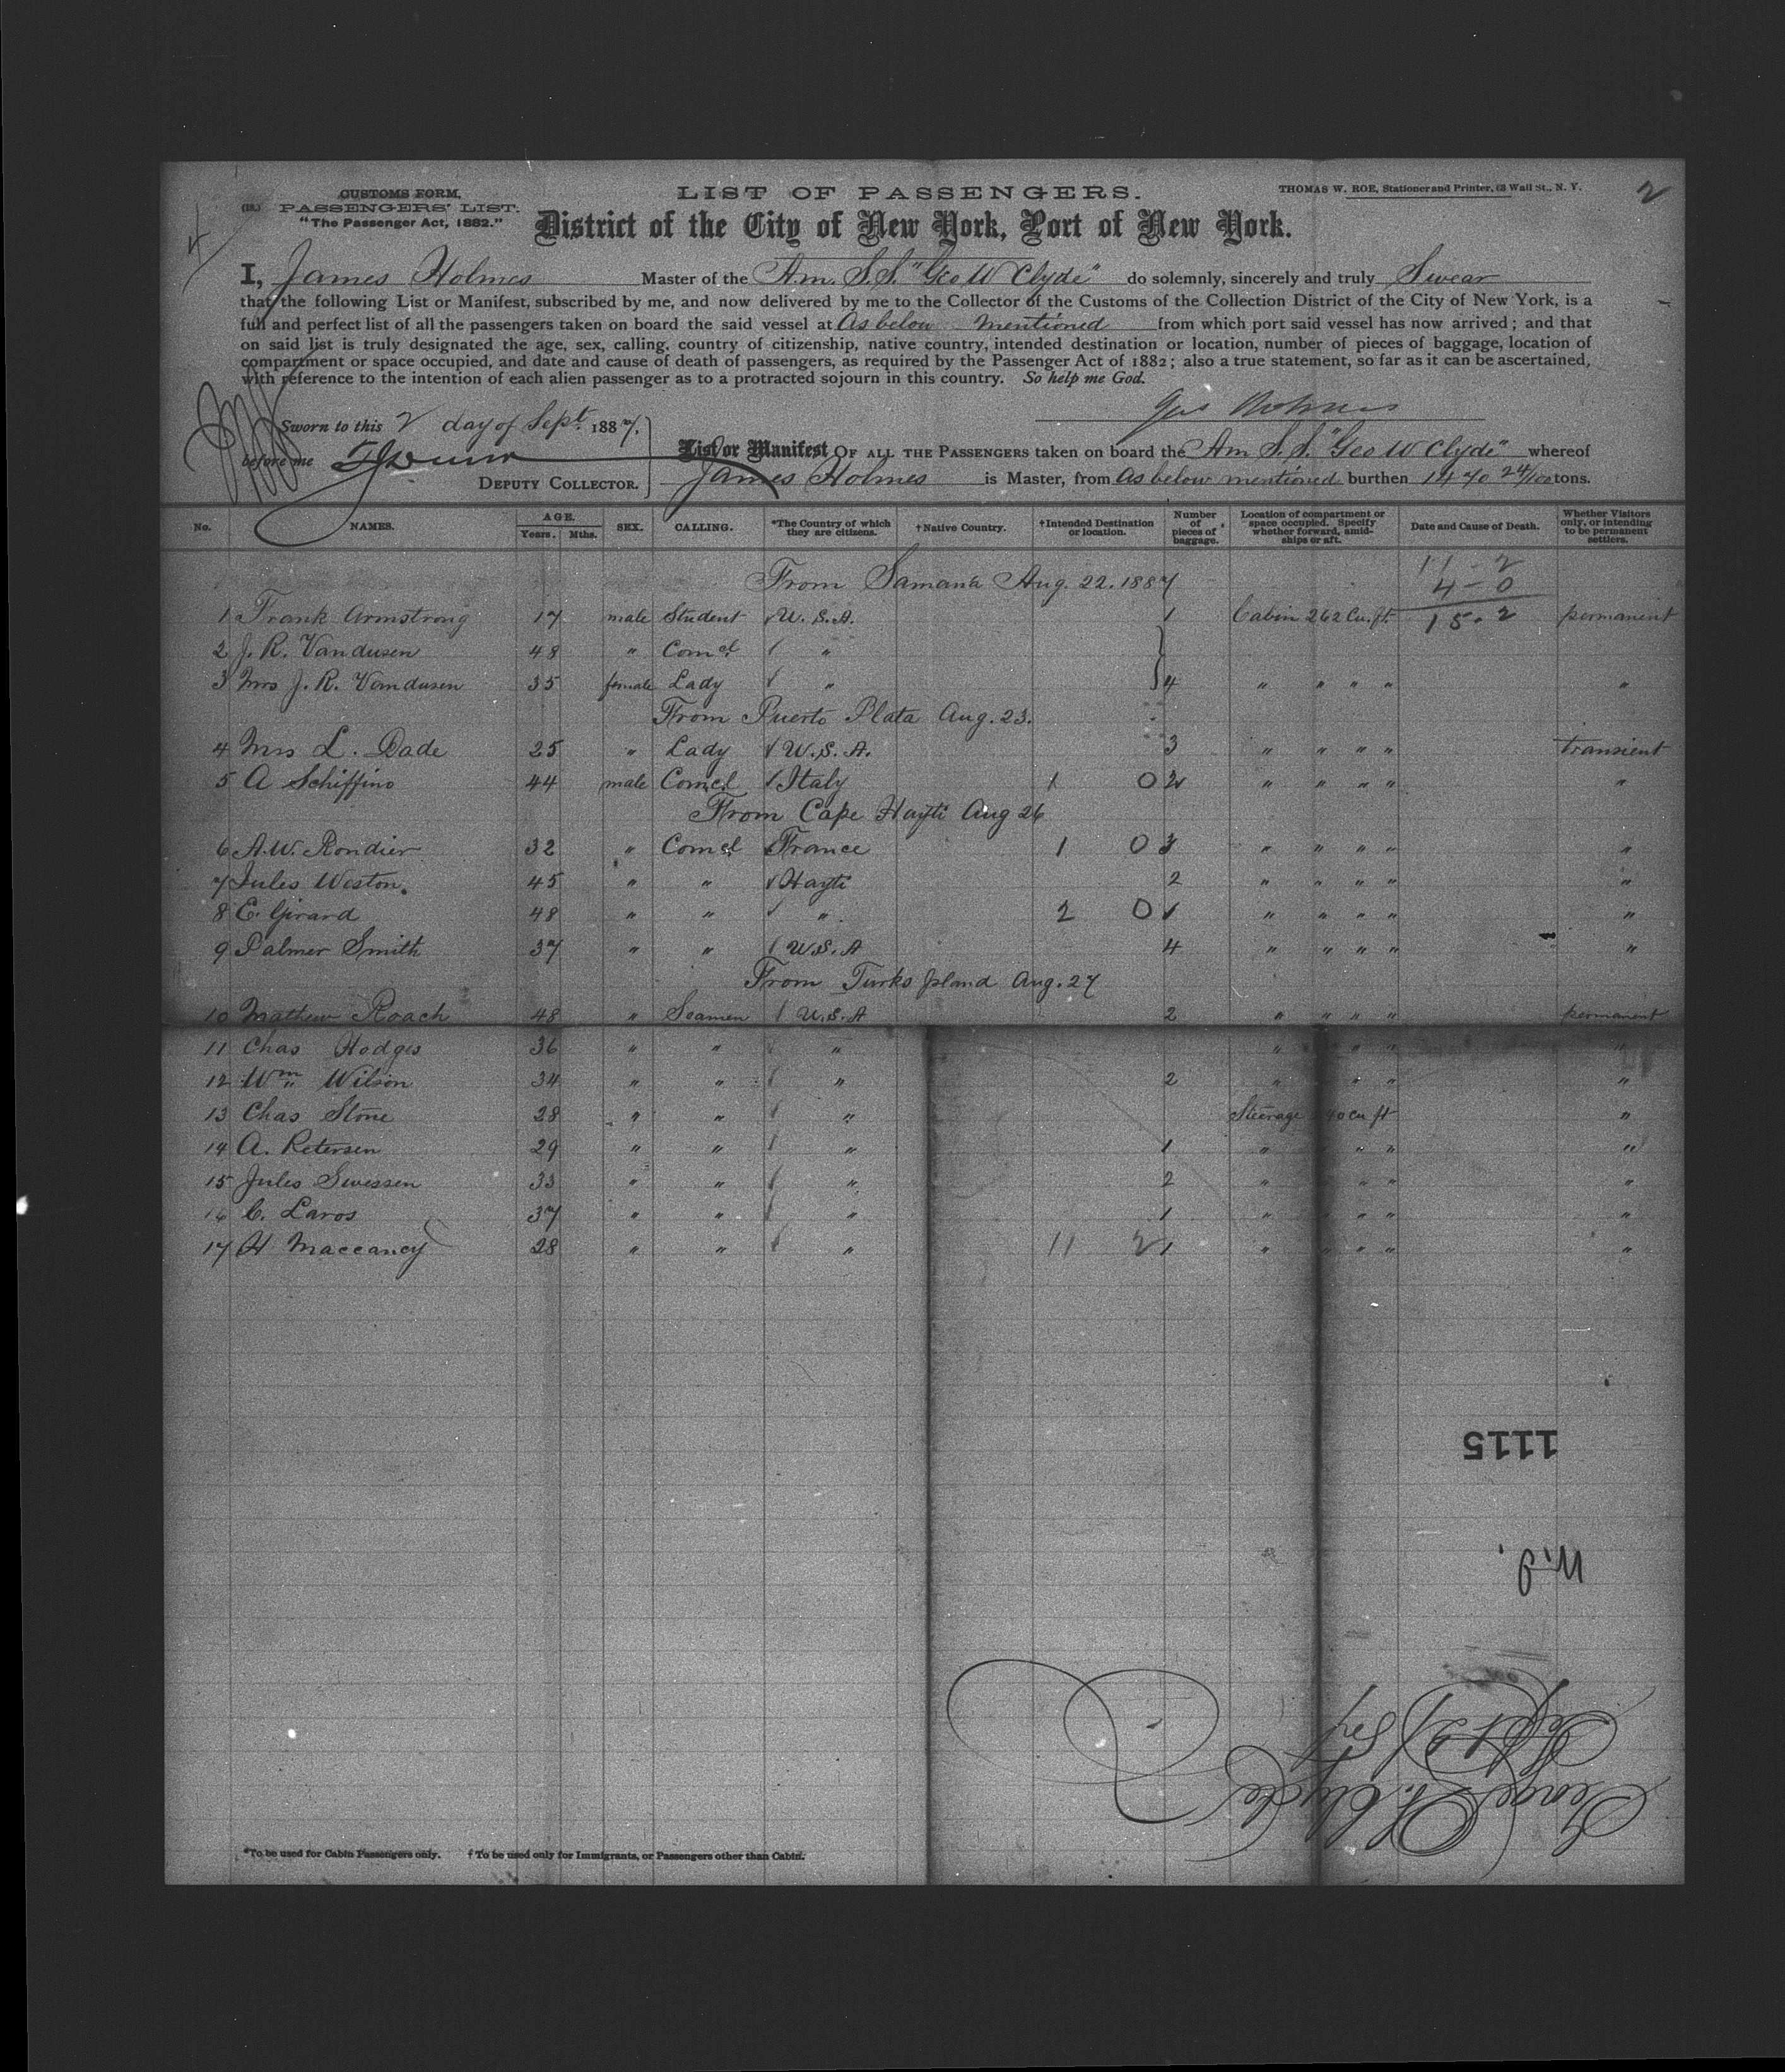 CUSTOMS FORM.
PASSENGERS' LIST.
"The Passenger Act, 1882."
LIST OF PASSENGERS.
THOMAS W. ROE, Stationer and Printer, 63 Wall St., N. Y.
2
District of the City of New York, Port of New York.
I, James Holmes Master of the Am. S.S. "Geo W Clyde" do solemnly, sincerely and truly Swear
that the following List or Manifest, subscribed by me, and now delivered by me to the Collector of the Customs of the Collection District of the City of New York, is a
full and perfect list of all the passengers taken on board the said vessel at As below mentioned from which port said vessel has now arrived; and that
on said list is truly designated the age, sex, calling, country of citizenship, native country, intended destination or location, number of pieces of baggage, location of
compartment or space occupied, and date and cause of death of passengers, as required by the Passenger Act of 1882; also a true statement, so far as it can be ascertained,
with reference to the intention of each alien passenger as to a protracted sojourn in this country. So help me God.
Jas Holmes
Sworn to this 2 day of Sept. 1887.
before me
DEPUTY COLLECTOR.
List or Manifest OF ALL THE PASSENGERS taken on board the Am S.S. "Geo W Clyde" whereof
James Holmes is Master, from As below mentioned burthen 1470 24/100 tons.
No. NAMES. AGE. Years. Mths. SEX. CALLING. *The Country of which they are citizens. †Native Country. †Intended Destination or location. Number of pieces of baggage. Location of compartment or space occupied. Specify whether forward, amidships or aft. Date and Cause of Death. Whether Visitors only, or intending to be permanent settlers.
From Samana Aug. 22. 1887
11-2
4-0
15-2
1 Frank Armstrong 17 male Student U.S.A. 1 Cabin 262 Cu. ft. permanent
2 J. R. Vandusen 48 " Comcl "
3 Mrs J. R. Vandusen 35 female Lady " 4 " " " " "
From Puerto Plata Aug. 23.
4 Mrs L. Dade 25 " Lady U.S.A. 3 " " " " transient
5 A Schiffino 44 male Comcl Italy 1 0 2 " " " " "
From Cape Hayti Aug 26
6 A.W. Rondier 32 " Comcl France 1 0 3 " " " " "
7 Jules Weston 45 " " Hayti 2 " " " " "
8 E. Girard 48 " " " 2 0 1 " " " " "
9 Palmer Smith 37 " " U.S.A 4 " " " " "
From Turks Island Aug. 27
10 Mathew Roach 48 " Seamen U.S.A 2 " " " " permanent
11 Chas Hodges 36 " " " " " " "
12 Wm Wilson 34 " " " 2 " " " "
13 Chas Stone 28 " " " Steerage 40 cu ft "
14 A. Petersen 29 " " " 1 " " " "
15 Jules Swessen 33 " " " 2 " " " "
16 C. Laros 37 " " " 1 " " " " "
17 H Maccancy 28 " " " 11 2 1 " " " " "
1115
N.P.
George W. Clyde
Sept 2/87
*To be used for Cabin Passengers only. †To be used only for Immigrants, or Passengers other than Cabin.